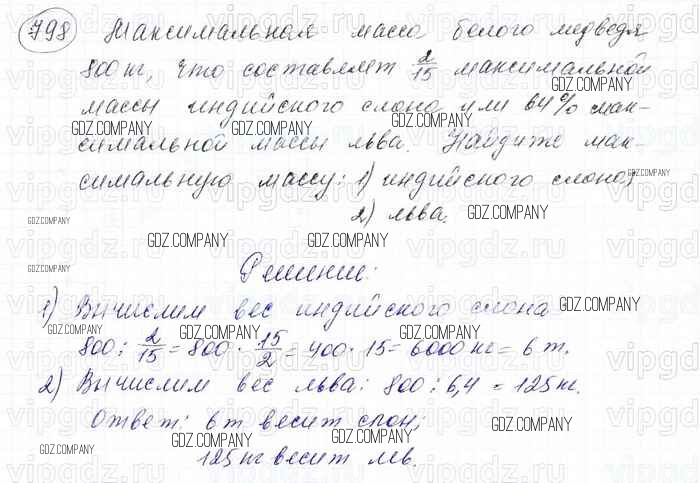 798 Максимальная масса белого медведя
800 кг, что составляет 2/15 максимальной
массы индийского слона или 64% мак-
симальной массы льва. Найдите мак-
симальную массу: 1) индийского слона;
2) льва.
Решение:
1) Вычислим вес индийского слона
800 : 2/15 = 800 · 15/2 = 400 · 15 = 6000 кг = 6 т.
2) Вычислим вес льва: 800 : 6,4 = 125 кг.
Ответ: 6 т весит слон;
125 кг весит лев.
GDZ.COMPANY
vipgdz.ru